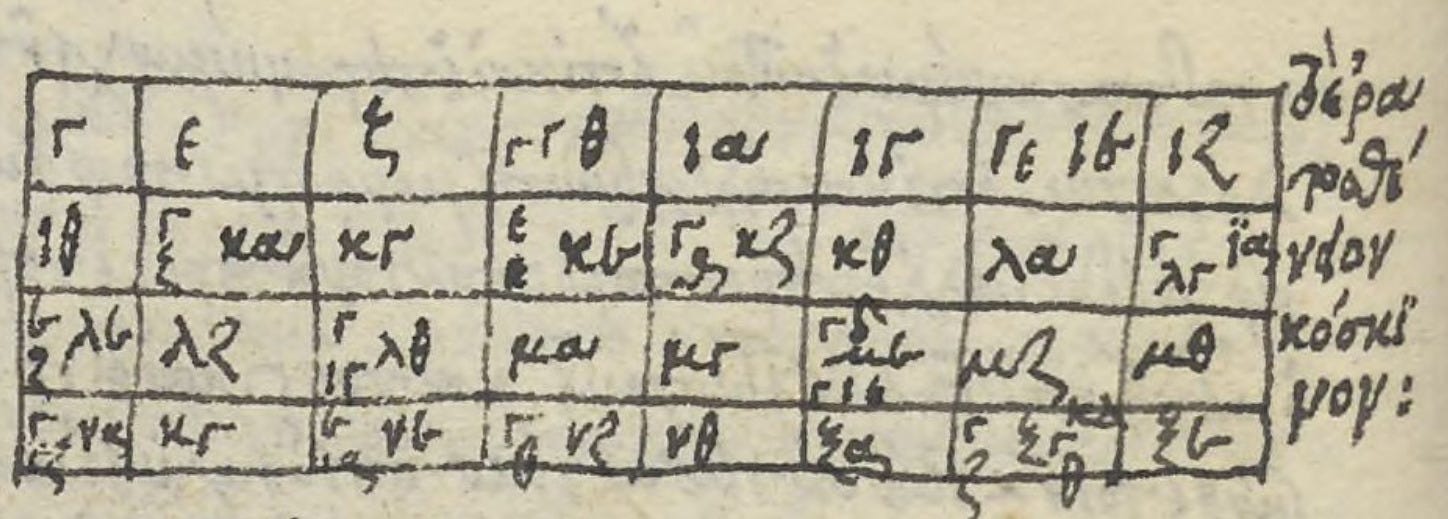 γ ε ζ γ γ θ ια ιγ γ ε ιε ιζ
ιθ γ ζ κα κγ ε ε κε γ θ κζ κθ λα γ λγ ια
ε ζ λε λζ γ ιγ λθ μα μγ με γ ιε μζ μθ
γ ιζ να κγ ε ια νε γ θ νζ νθ ξα γ ζ ξγ κα θ ξε
ἐρα
τοσθέ
νειον
κόσκι
νον: